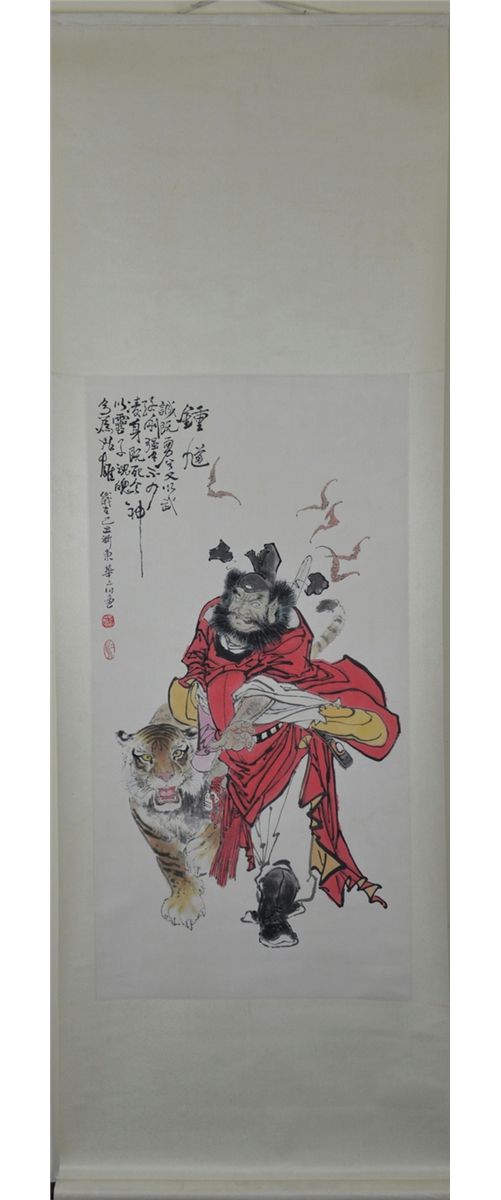 鍾馗
誠既勇兮又以武
終剛強兮不可
凌身既死兮神
以靈子魂魄
兮為鬼雄
歲在己丑浙東華三川畫